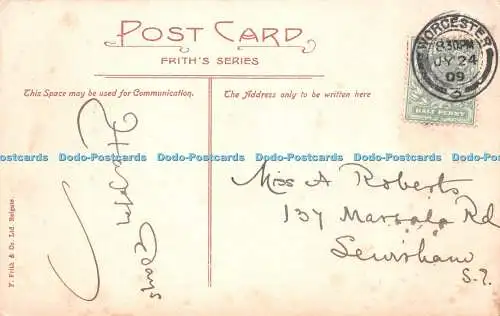 POST CARD
FRITH'S SERIES
This Space may be used for Communication.
The Address only to be written here
WORCESTER
8.30PM
JY 24
09
3
HALF PENNY
Dodo-Postcards Dodo-Postcards Dodo-Postcards Dodo-Postcards Dodo-Postcards Dodo-Postcards
Days
Miss A Roberts
137 Marsala Rd
Lewisham
S.E.
F. Frith & Co. Ltd. Reigate.